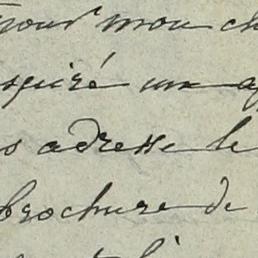 pour mon ch
spiré un a
s adresse le
brochure de